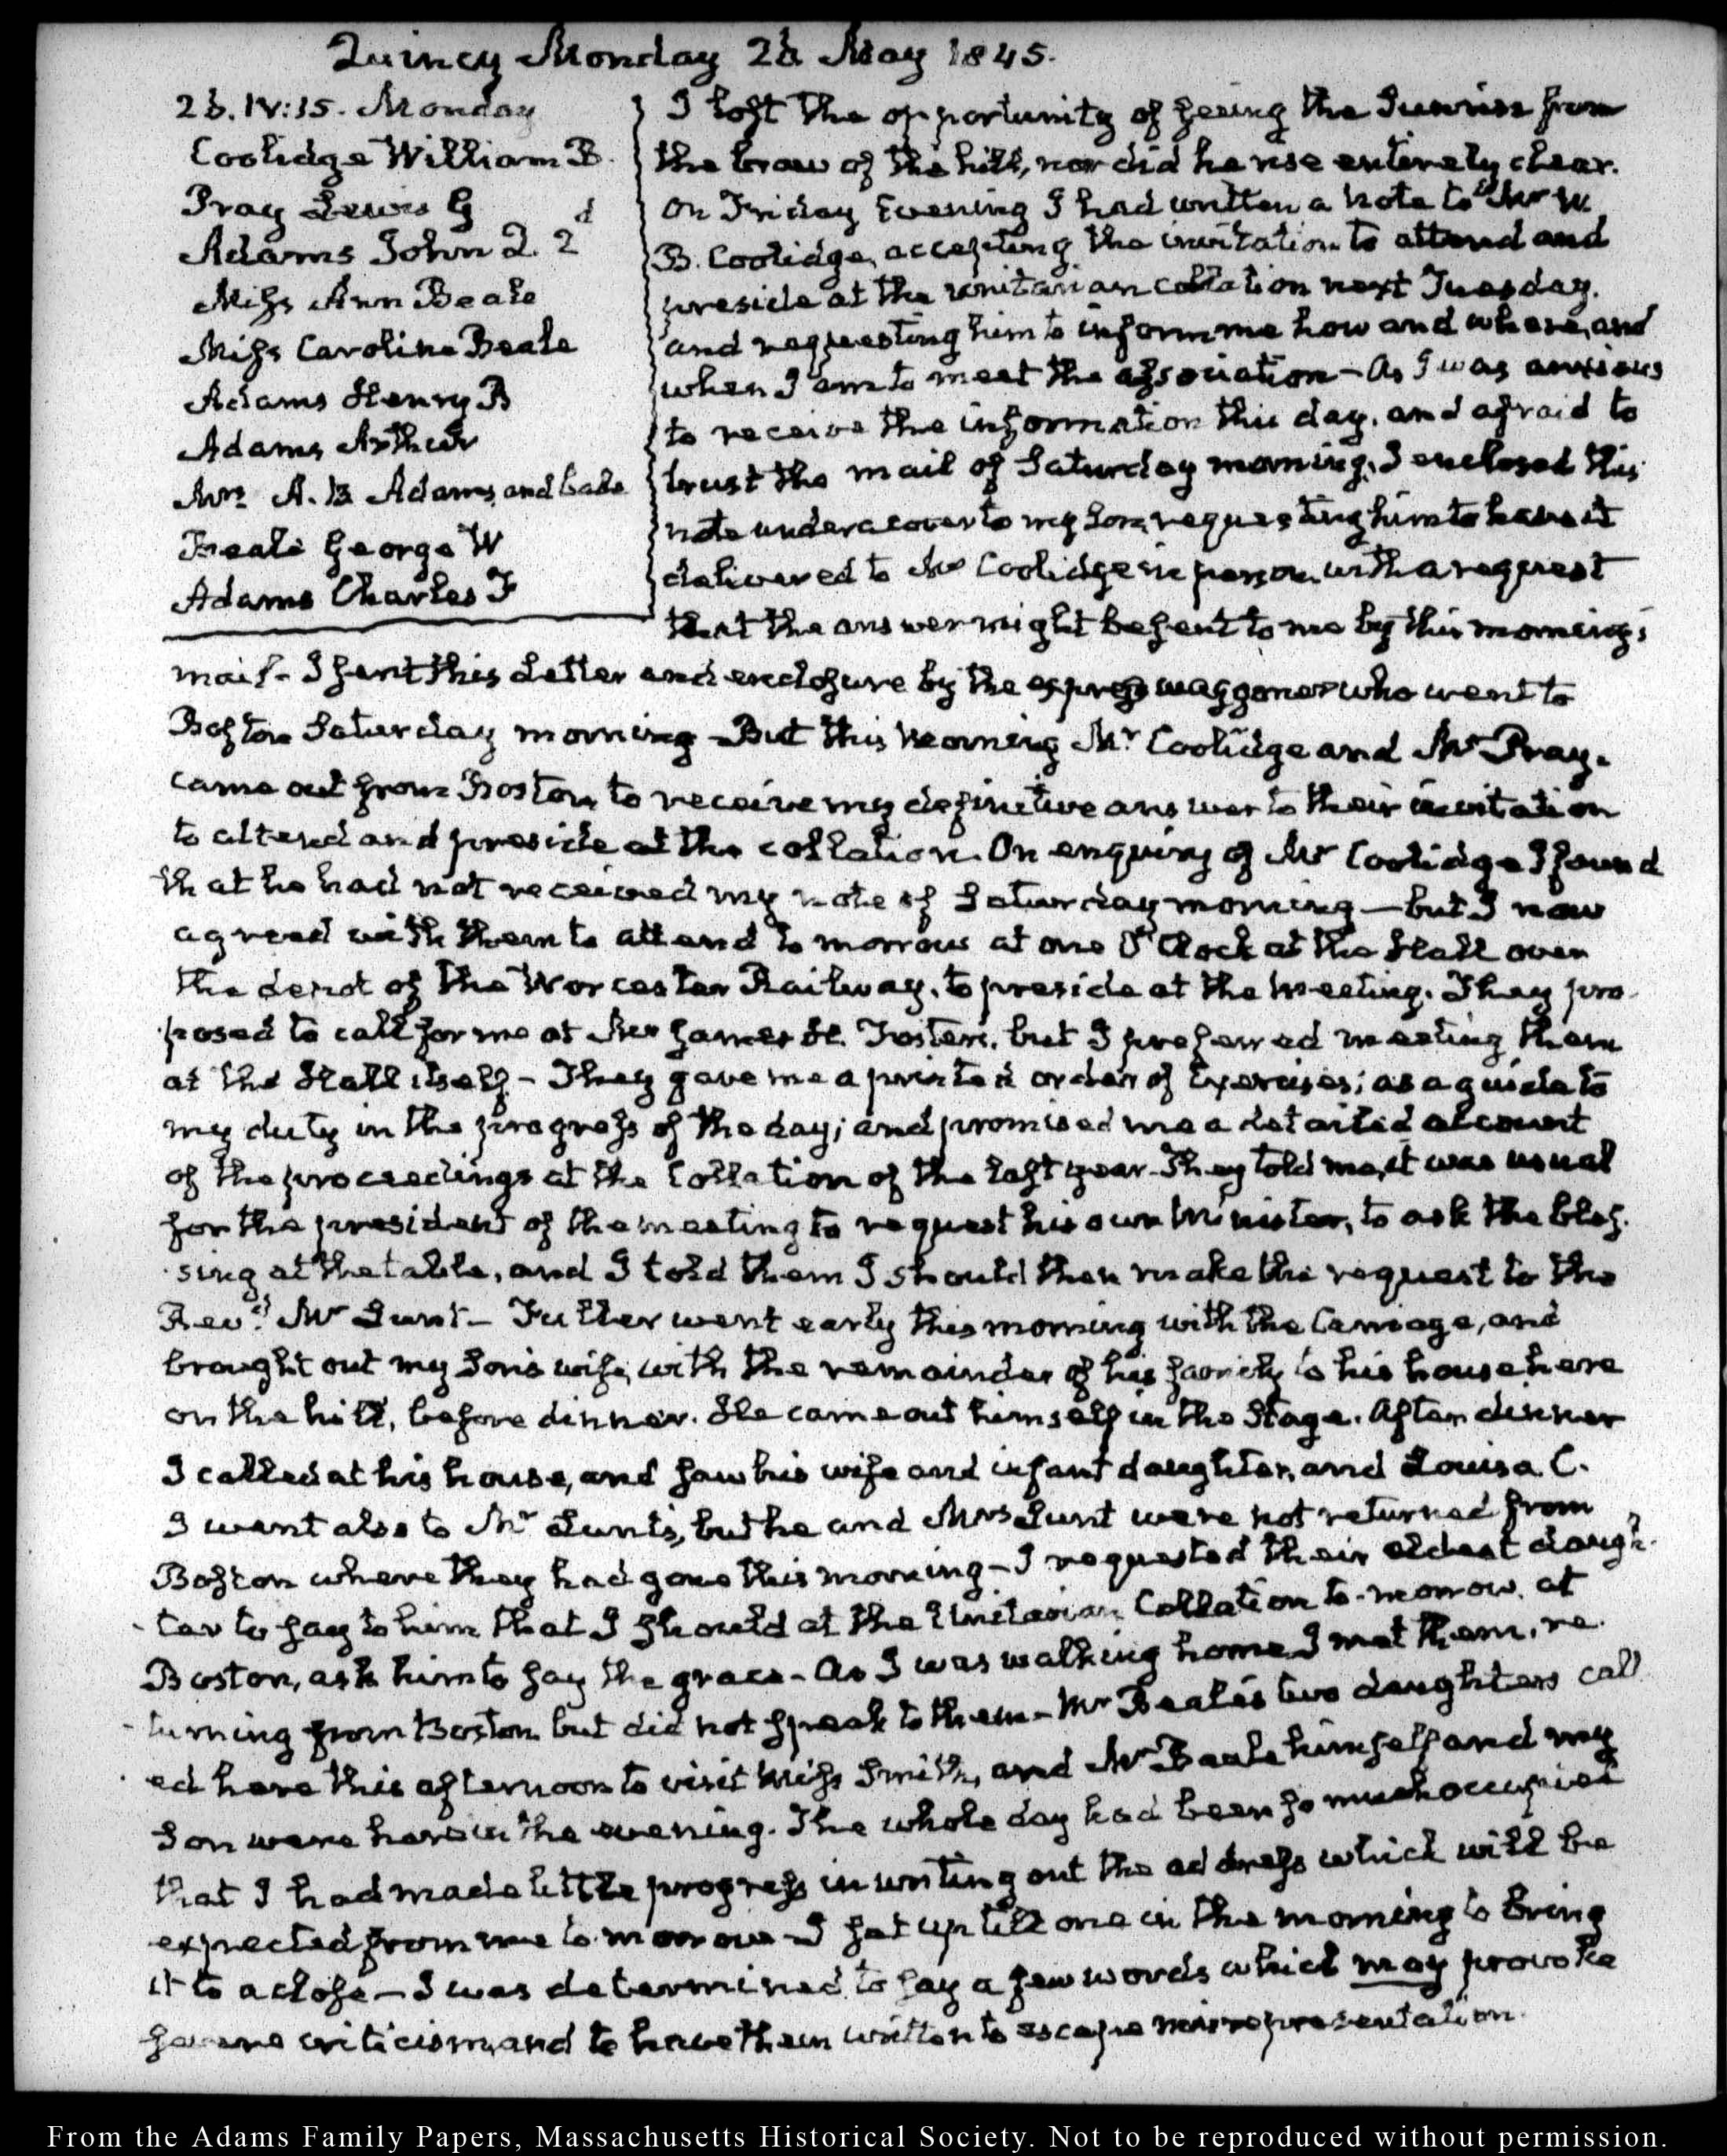 Quincy Monday 26 May 1845.
26. IV:15. Monday
Coolidge William B.
Pray Lewis G
Adams John Q. 2d
Miss Ann Beale
Miss Caroline Beale
Adams Henry B
Adams Arthur
Mrs A. B Adams and babe
Beale George W
Adams Charles F
I lost the opportunity of seeing the Sunrise from
the brow of the hill, nor did he rise entirely clear.
On Friday Evening I had written a note to Mr W
B. Coolidge, accepting the invitation to attend and
preside at the Unitarian collation next Tuesday.
and requesting him to inform me how and where, and
when I am to meet the association – As I was anxious
to receive the information this day, and afraid to
trust the mail of Saturday morning, I enclosed this
note under a cover to my Son, requesting him to have it
delivered to Mr Coolidge in person, with a request
that the answer might be sent to me by this morning's
mail – I sent this Letter and enclosure by the express waggoner who went to
Boston Saturday morning – But this Morning Mr Coolidge and Mr Pray.
came out from Boston, to receive my definitive answer to their invitation
to attend and preside at the collation. On enquiry of Mr Coolidge I found
that he had not received my note of Saturday morning — but I now
agreed with them to attend to morrow at one O'Clock at the Hall over
the depot of the Worcester Railway, to preside at the Meeting. They pro-
posed to call for me at Mr James H. Foster's, but I preferred meeting them
at the Hall itself – They gave me a printed order of Exercises; as a guide to
my duty in the progress of the day; and promised me a detailed account
of the proceedings at the Collation of the last year. They told me, it was usual
for the president of the meeting to request his own Minister, to ask the bles-
sing at the table, and I told them I should then make the request to the
Revd Mr Lunt – Fuller went early this morning with the Carriage, and
brought out my Son's wife, with the remainder of his family to his house here
on the hill, before dinner. He came out himself in the Stage. After dinner
I called at his house, and saw his wife and infant daughter, and Louisa C.
I went also to Mr Lunt's, but he and Mrs Lunt were not returned from
Boston where they had gone this morning – I requested their eldest daugh-
ter to say to him that I should at the Unitarian Collation to-morrow, at
Boston, ask him to say the grace – As I was walking home I met them, re-
turning from Boston but did not speak to them – Mr Beale's two daughters call
ed here this afternoon to visit Miss Smith, and Mr Beale himself and my
Son were here in the evening. The whole day had been so much occupied
that I had made little progress in writing out the address which will be
expected from me to morrow – I sat up till one in the morning to bring
it to a close – I was determined to say a few words which may provoke
severe criticism, and to have them written to escape misrepresentation.
From the Adams Family Papers, Massachusetts Historical Society. Not to be reproduced without permission.